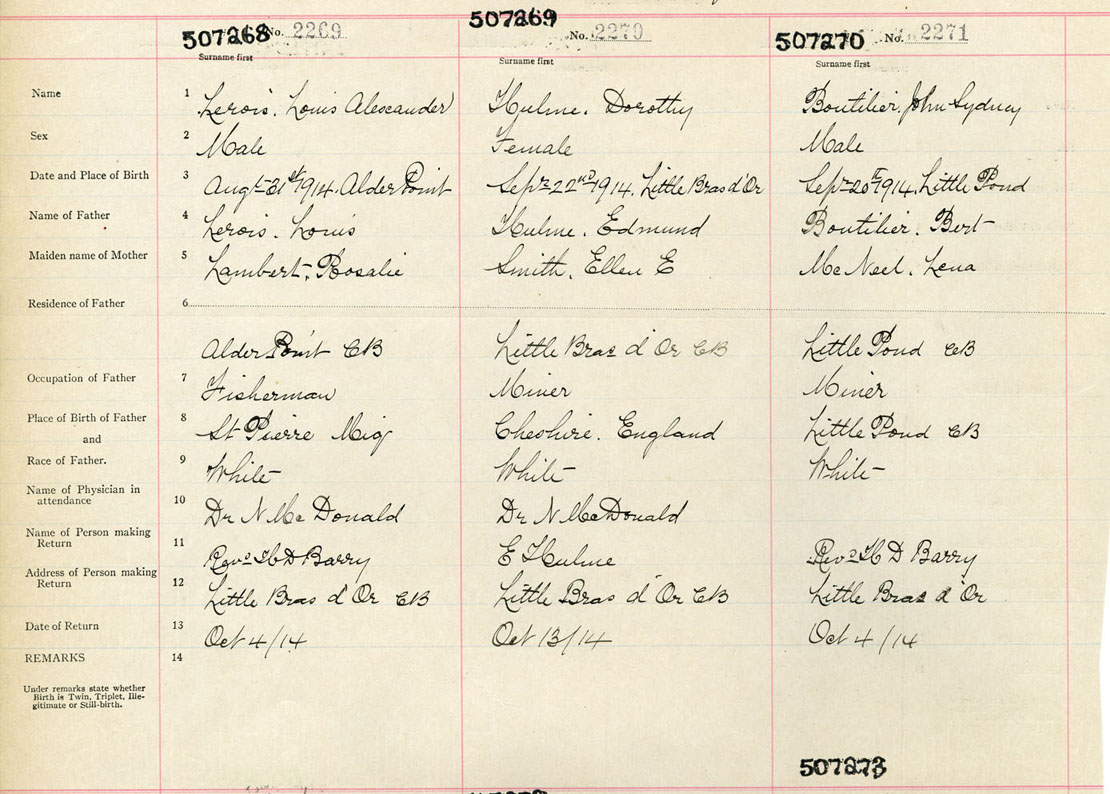 507268 No. 2269
507269 No. 2270
507270 No. 2271
Surname first Surname first Surname first
Name 1 Lerois. Louis Alescander Hulme. Dorothy Boutilier. John Sydney
Sex 2 Male Female Male
Date and Place of Birth 3 Augt 31st 1914. Alder Point Sept 22nd 1914. Little Bras d'Or Sept 20t 1914. Little Pond
Name of Father 4 Lerois. Louis Hulme. Edmund Boutilier. Bert
Maiden name of Mother 5 Lambert. Rosalie Smith. Ellen E McNeel. Lena
Residence of Father 6
Alder Point CB Little Bras d'Or CB Little Pond CB
Occupation of Father 7 Fisherman Miner Miner
Place of Birth of Father 8 St Pierre Miq Cheshire. England Little Pond CB
and
Race of Father. 9 White White White
Name of Physician in
attendance 10 Dr N McDonald Dr N McDonald
Name of Person making
Return 11 Revd H D Barry E Hulme Revd H D Barry
Address of Person making
Return 12 Little Bras d'Or CB Little Bras d'Or CB Little Bras d'Or
Date of Return 13 Oct 4/14 Oct 13/14 Oct 4/14
REMARKS 14
Under remarks state whether
Birth is Twin, Triplet, Ille-
gitimate or Still-birth.
507273